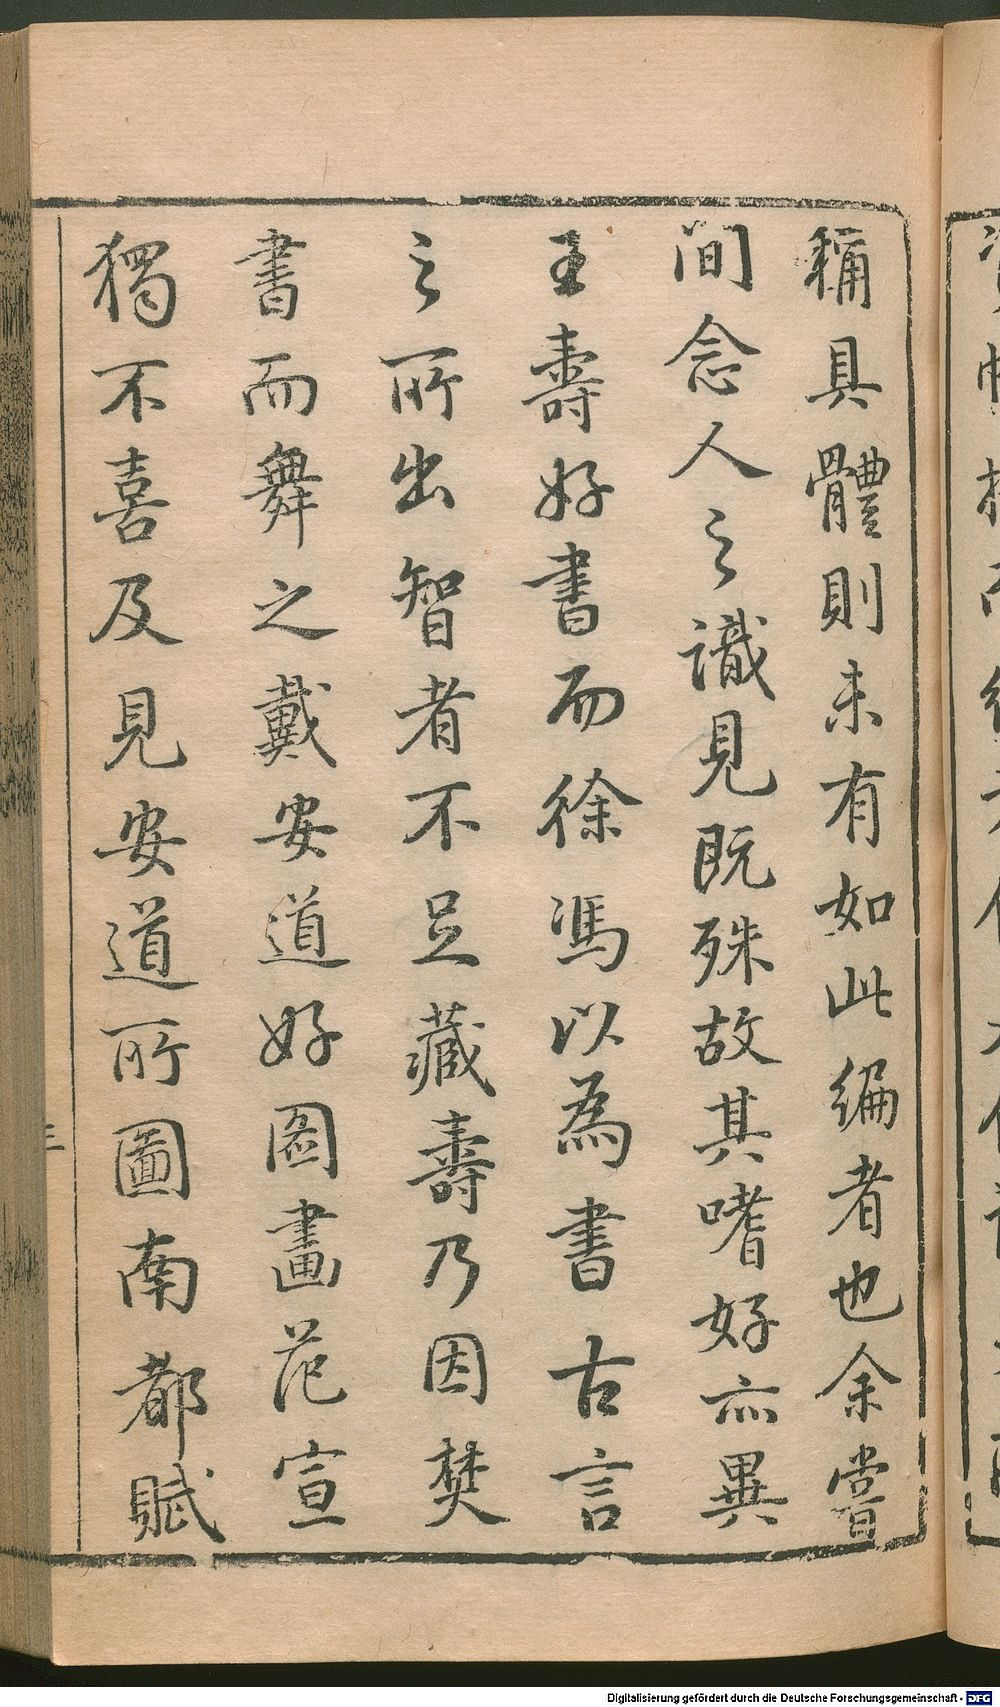 稱具體則未有如此編者也余嘗
間念人之識見既殊故其嗜好亦異
王壽好書而徐馮以為書古言
之所出智者不足藏壽乃因焚
書而舞之戴安道好圖畫范宣
獨不喜及見安道所圖南都賦
三
Digitalisierung gefördert durch die Deutsche Forschungsgemeinschaft - DFG